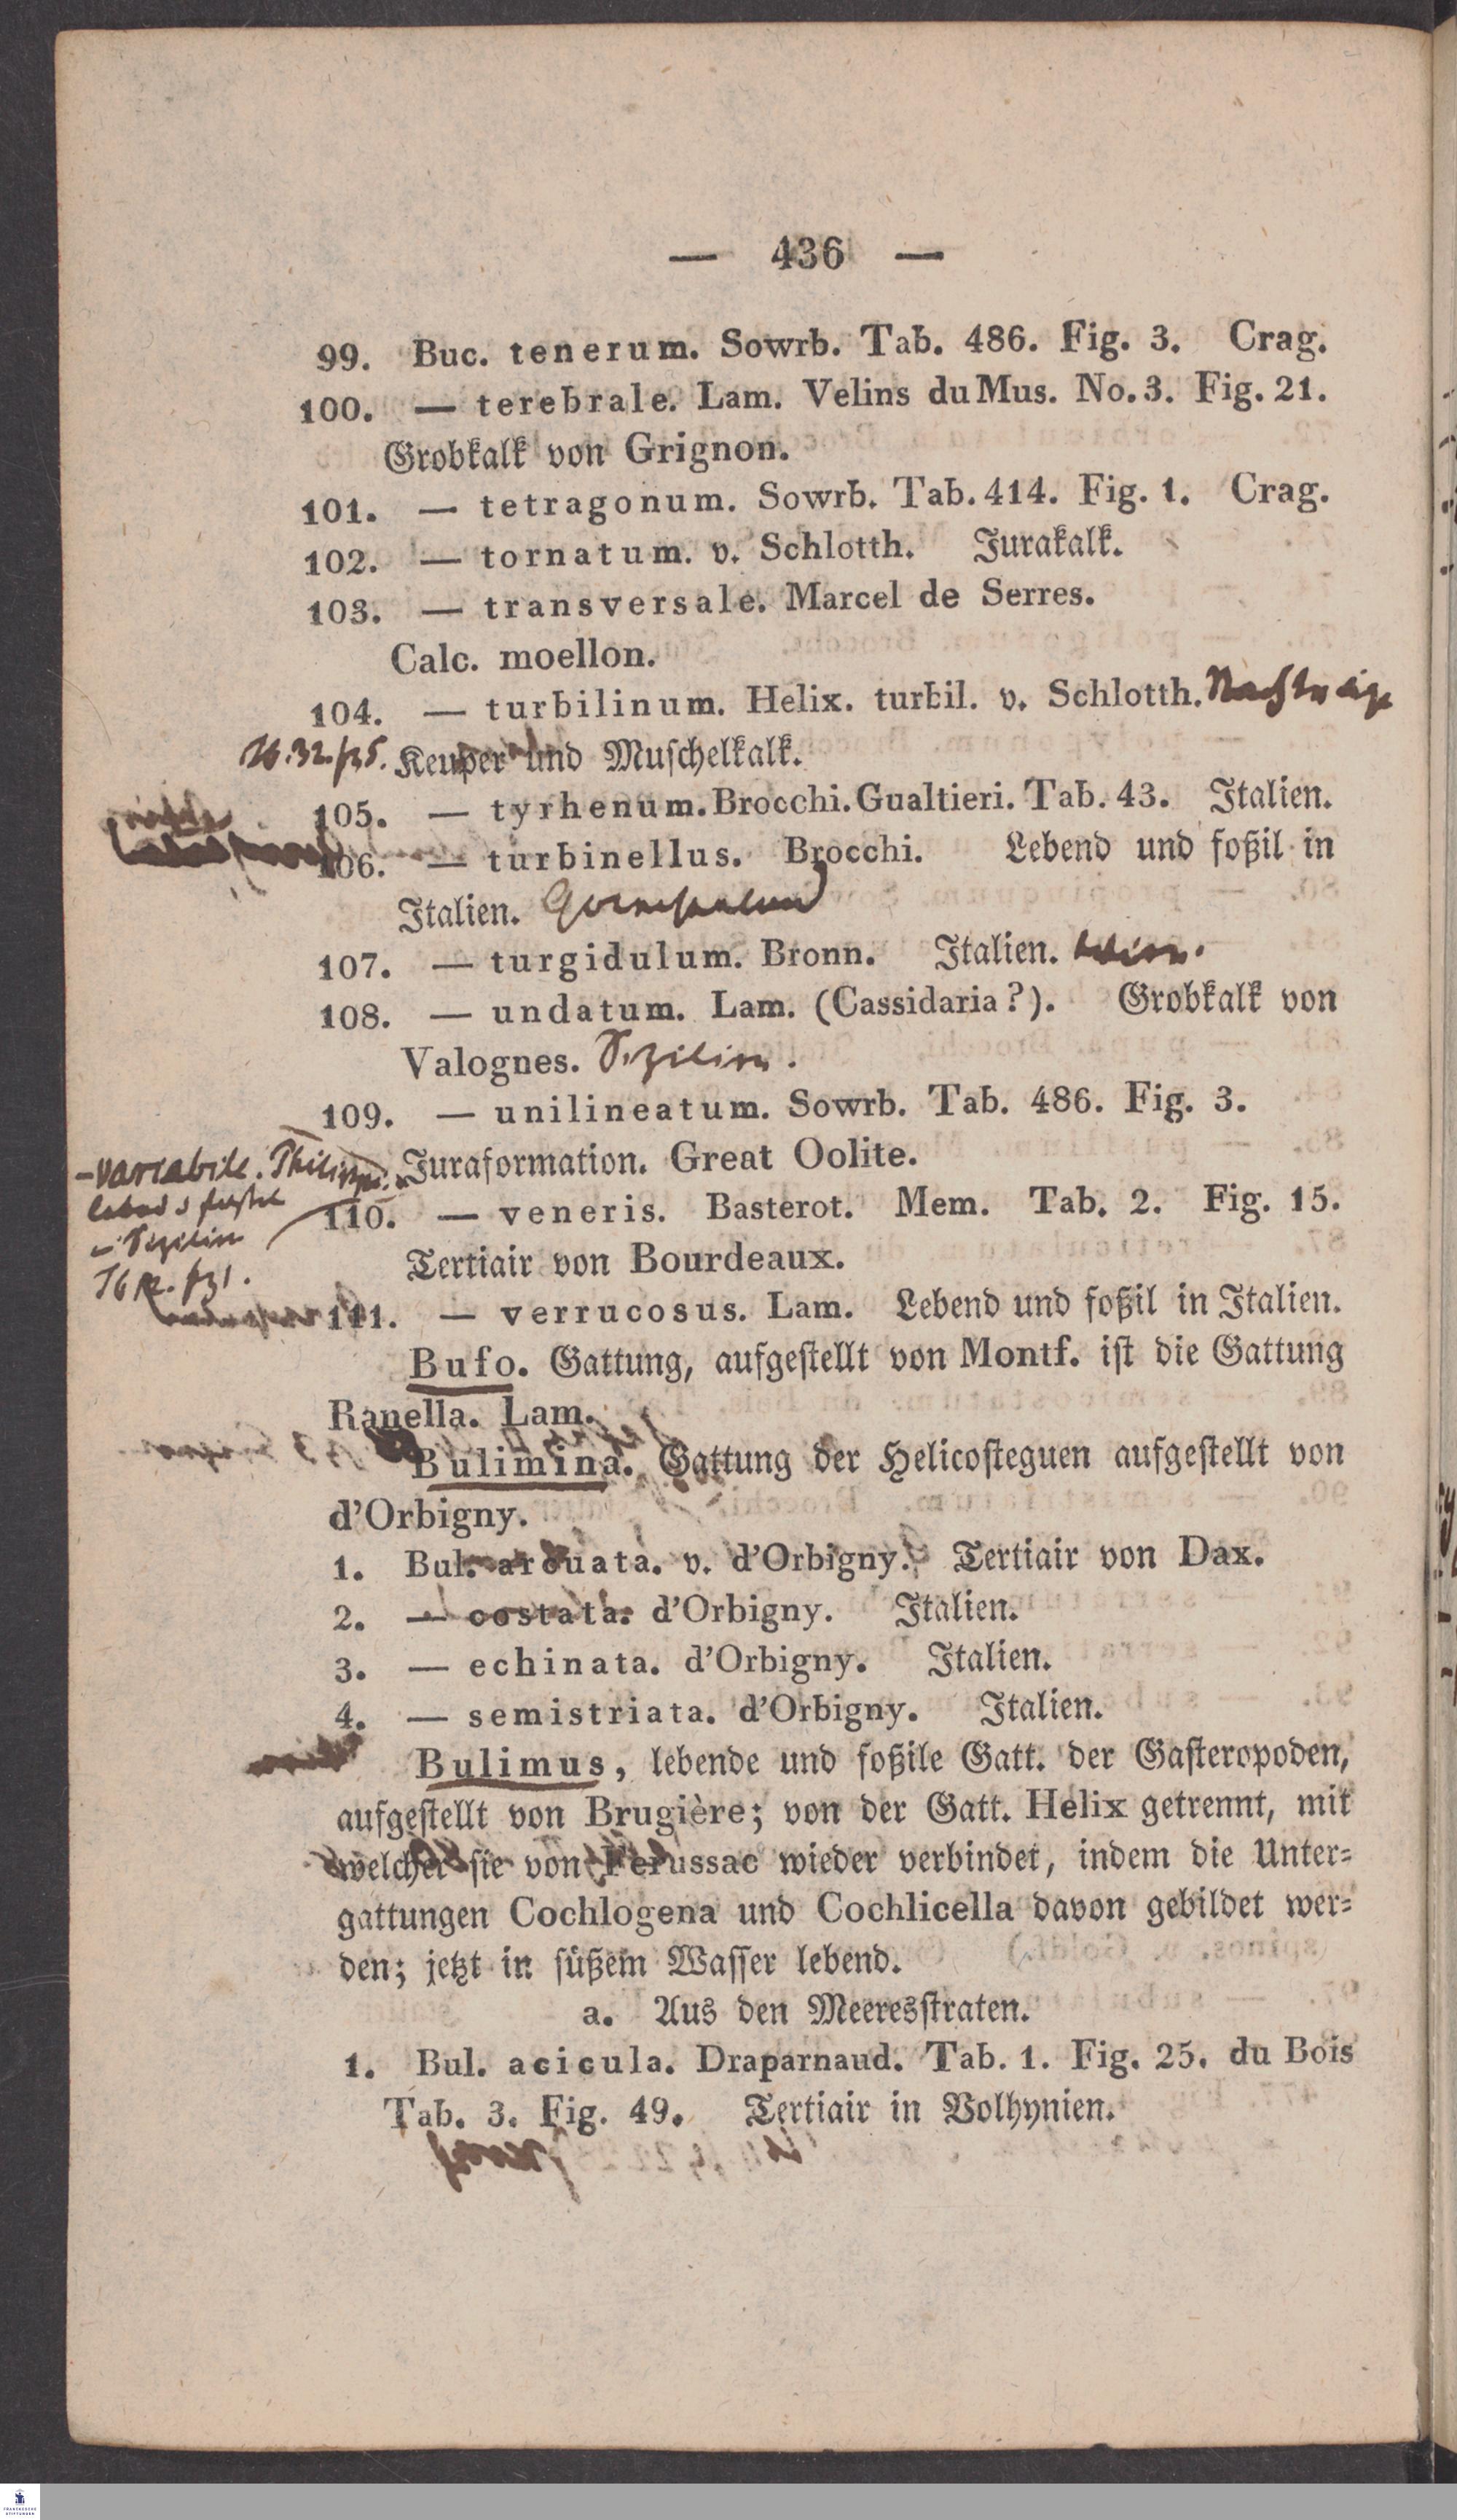 — 436 —
99. Buc. tenerum. Sowrb. Tab. 486. Fig. 3. Crag.
100. — terebrale. Lam. Velins du Mus. No. 3. Fig. 21.
Grobkalk von Grignon.
101. — tetragonum. Sowrb. Tab. 414. Fig. 1. Crag.
102. — tornatum. v. Schlotth. Jurakalk.
103. — transversale. Marcel de Serres.
Calc. moellon.
104. — turbilinum. Helix. turbil. v. Schlotth. Nachträge
Keuper und Muschelkalk.
105. — tyrhenum. Brocchi. Gualtieri. Tab. 43. Italien.
106. — turbinellus. Brocchi. Lebend und foßil in
Italien.
107. — turgidulum. Bronn. Italien.
108. — undatum. Lam. (Cassidaria?). Grobkalk von
Valognes. Sizilien.
109. — unilineatum. Sowrb. Tab. 486. Fig. 3.
Juraformation. Great Oolite.
— variabile. Philippi.
— Sizilien
110. — veneris. Basterot. Mem. Tab. 2. Fig. 15.
Tertiair von Bourdeaux.
111. — verrucosus. Lam. Lebend und foßil in Italien.
Bufo. Gattung, aufgestellt von Montf. ist die Gattung
Ranella. Lam.
Bulimina. Gattung der Helicosteguen aufgestellt von
d'Orbigny.
1. Bul. arcuata. v. d'Orbigny. Tertiair von Dax.
2. — costata. d'Orbigny. Italien.
3. — echinata. d'Orbigny. Italien.
4. — semistriata. d'Orbigny. Italien.
Bulimus, lebende und foßile Gatt. der Gasteropoden,
aufgestellt von Brugière; von der Gatt. Helix getrennt, mit
welcher sie von Ferussac wieder verbindet, indem die Unter=
gattungen Cochlogena und Cochlicella davon gebildet wer=
den; jetzt in süßem Wasser lebend.
a. Aus den Meeresstraten.
1. Bul. acicula. Draparnaud. Tab. 1. Fig. 25. du Bois
Tab. 3. Fig. 49. Tertiair in Volhynien.